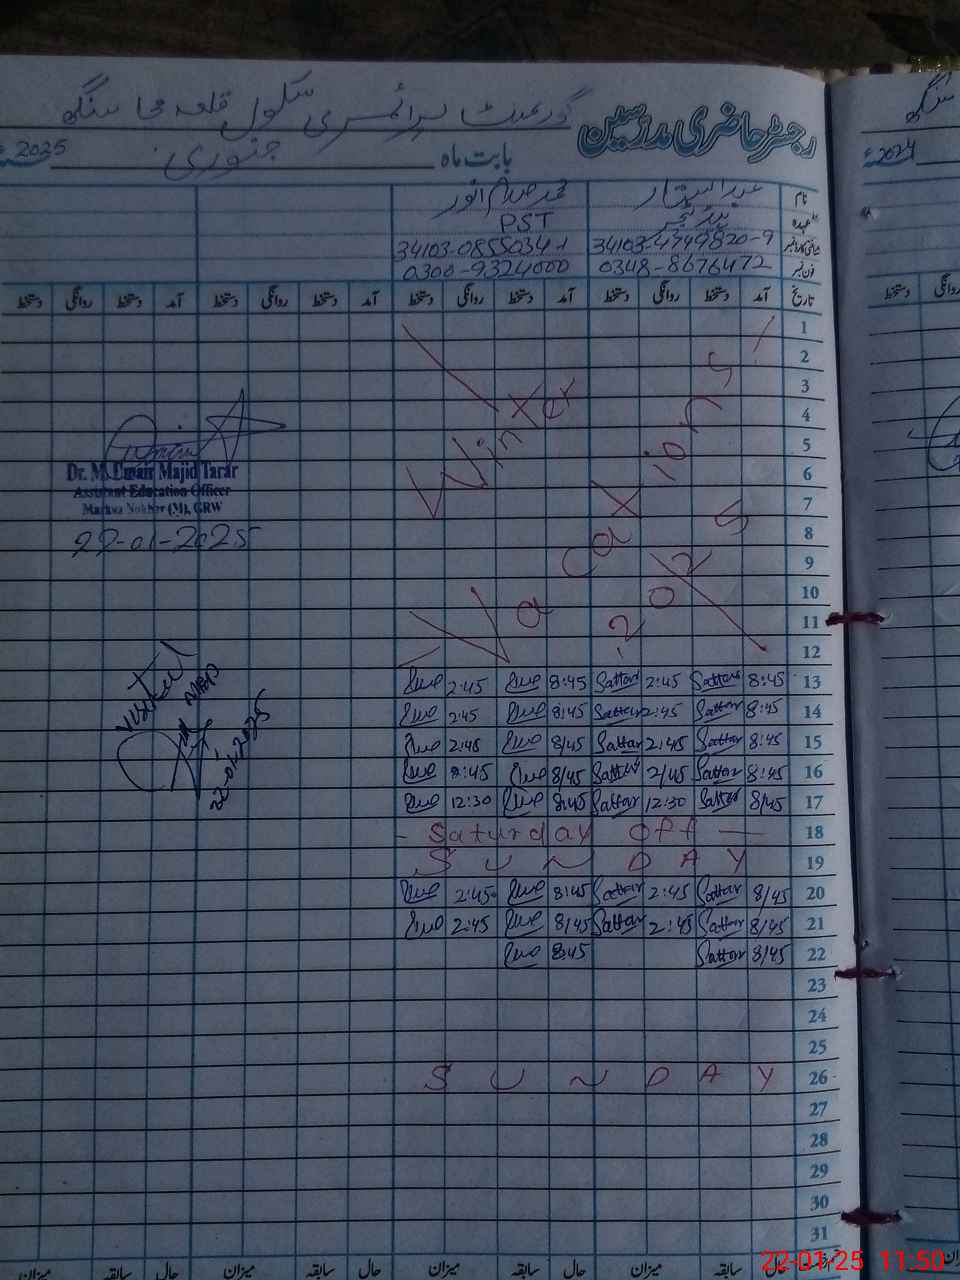 گورنمنٹ پرائمری سکول قلعہ مجا سنگھ
رجسٹر حاضری مدرسین
بابت ماہ جنوری 2025ء
نام عبدالستار محمد صارم انور
عہدہ ہیڈ ٹیچر PST
شناختی کارڈ نمبر 34103-4749820-9 34103-0855034-1
فون نمبر 0348-8676472 0300-9324000
تاریخ آمد دستخط روانگی دستخط آمد دستخط روانگی دستخط آمد دستخط روانگی دستخط آمد دستخط روانگی دستخط
1
2
3
4
5
6
7
8
9
10
11
12
Winter
Vacations
2025
13 8:45 Sattar 2:45 Sattar 8:45 2:45
14 8:45 Sattar 2:45 Sattar 8:45 2:45
15 8:45 Sattar 2:45 Sattar 8/45 2:45
16 8:45 Sattar 2/45 Sattar 8/45 2:45
17 8/45 Sattar 12:30 Sattar 8:45 12:30
18 Saturday off
19 SUNDAY
20 8/45 Sattar 2:45 Sattar 8:45 2:45
21 8/45 Sattar 2:45 Sattar 8/45 2:45
22 8/45 Sattar 8:45
23
24
25
26 SUNDAY
27
28
29
30
31
Dr. M. Umair Majid Tarar
Assistant Education Officer
Markaz Nokhar (M), GRW
22-01-2025
Visited
22-01-2025
میزان حال سابقہ میزان حال سابقہ میزان حال سابقہ میزان حال سابقہ
2024ء
دستخط روانگی
22-01-25 11:50